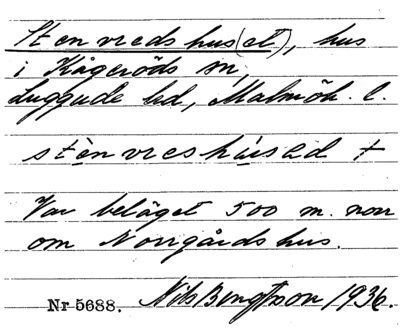 Stenvredshus(et), hus
i Kågeröds sn,
Luggude hd, Malmöh. l.
stènvreshúsəd +
Var beläget 500 m. norr
om Norrgårdshus.
Nr 5688. Nils Bengtsson 1936.